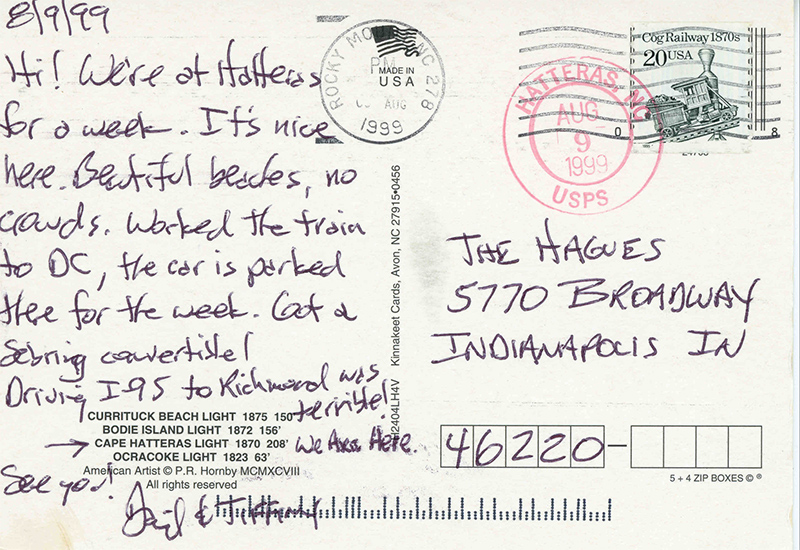 8/9/99
Hi! We're at Hatteras
for a week. It's nice
here. Beautiful beaches, no
crowds. Worked the train
to DC, the car is parked
there for the week. Got a
Sebring convertible!
Driving I-95 to Richmond was
terrible!
CURRITUCK BEACH LIGHT 1875 150'
BODIE ISLAND LIGHT 1872 156'
→ CAPE HATTERAS LIGHT 1870 208' We Are Here.
OCRACOKE LIGHT 1823 63'
American Artist © P.R. Hornby MCMXCVIII
All rights reserved
See you!
&
Kinnakeet Cards, Avon, NC 27915•0456
ROCKY MOUNT NC 278
PM
AUG
1999
MADE IN
USA
HATTERAS, NC
AUG
9
1999
USPS
Cog Railway 1870s
20 USA
THE HAGUES
5770 BROADWAY
INDIANAPOLIS IN
46220-
5 + 4 ZIP BOXES © ®